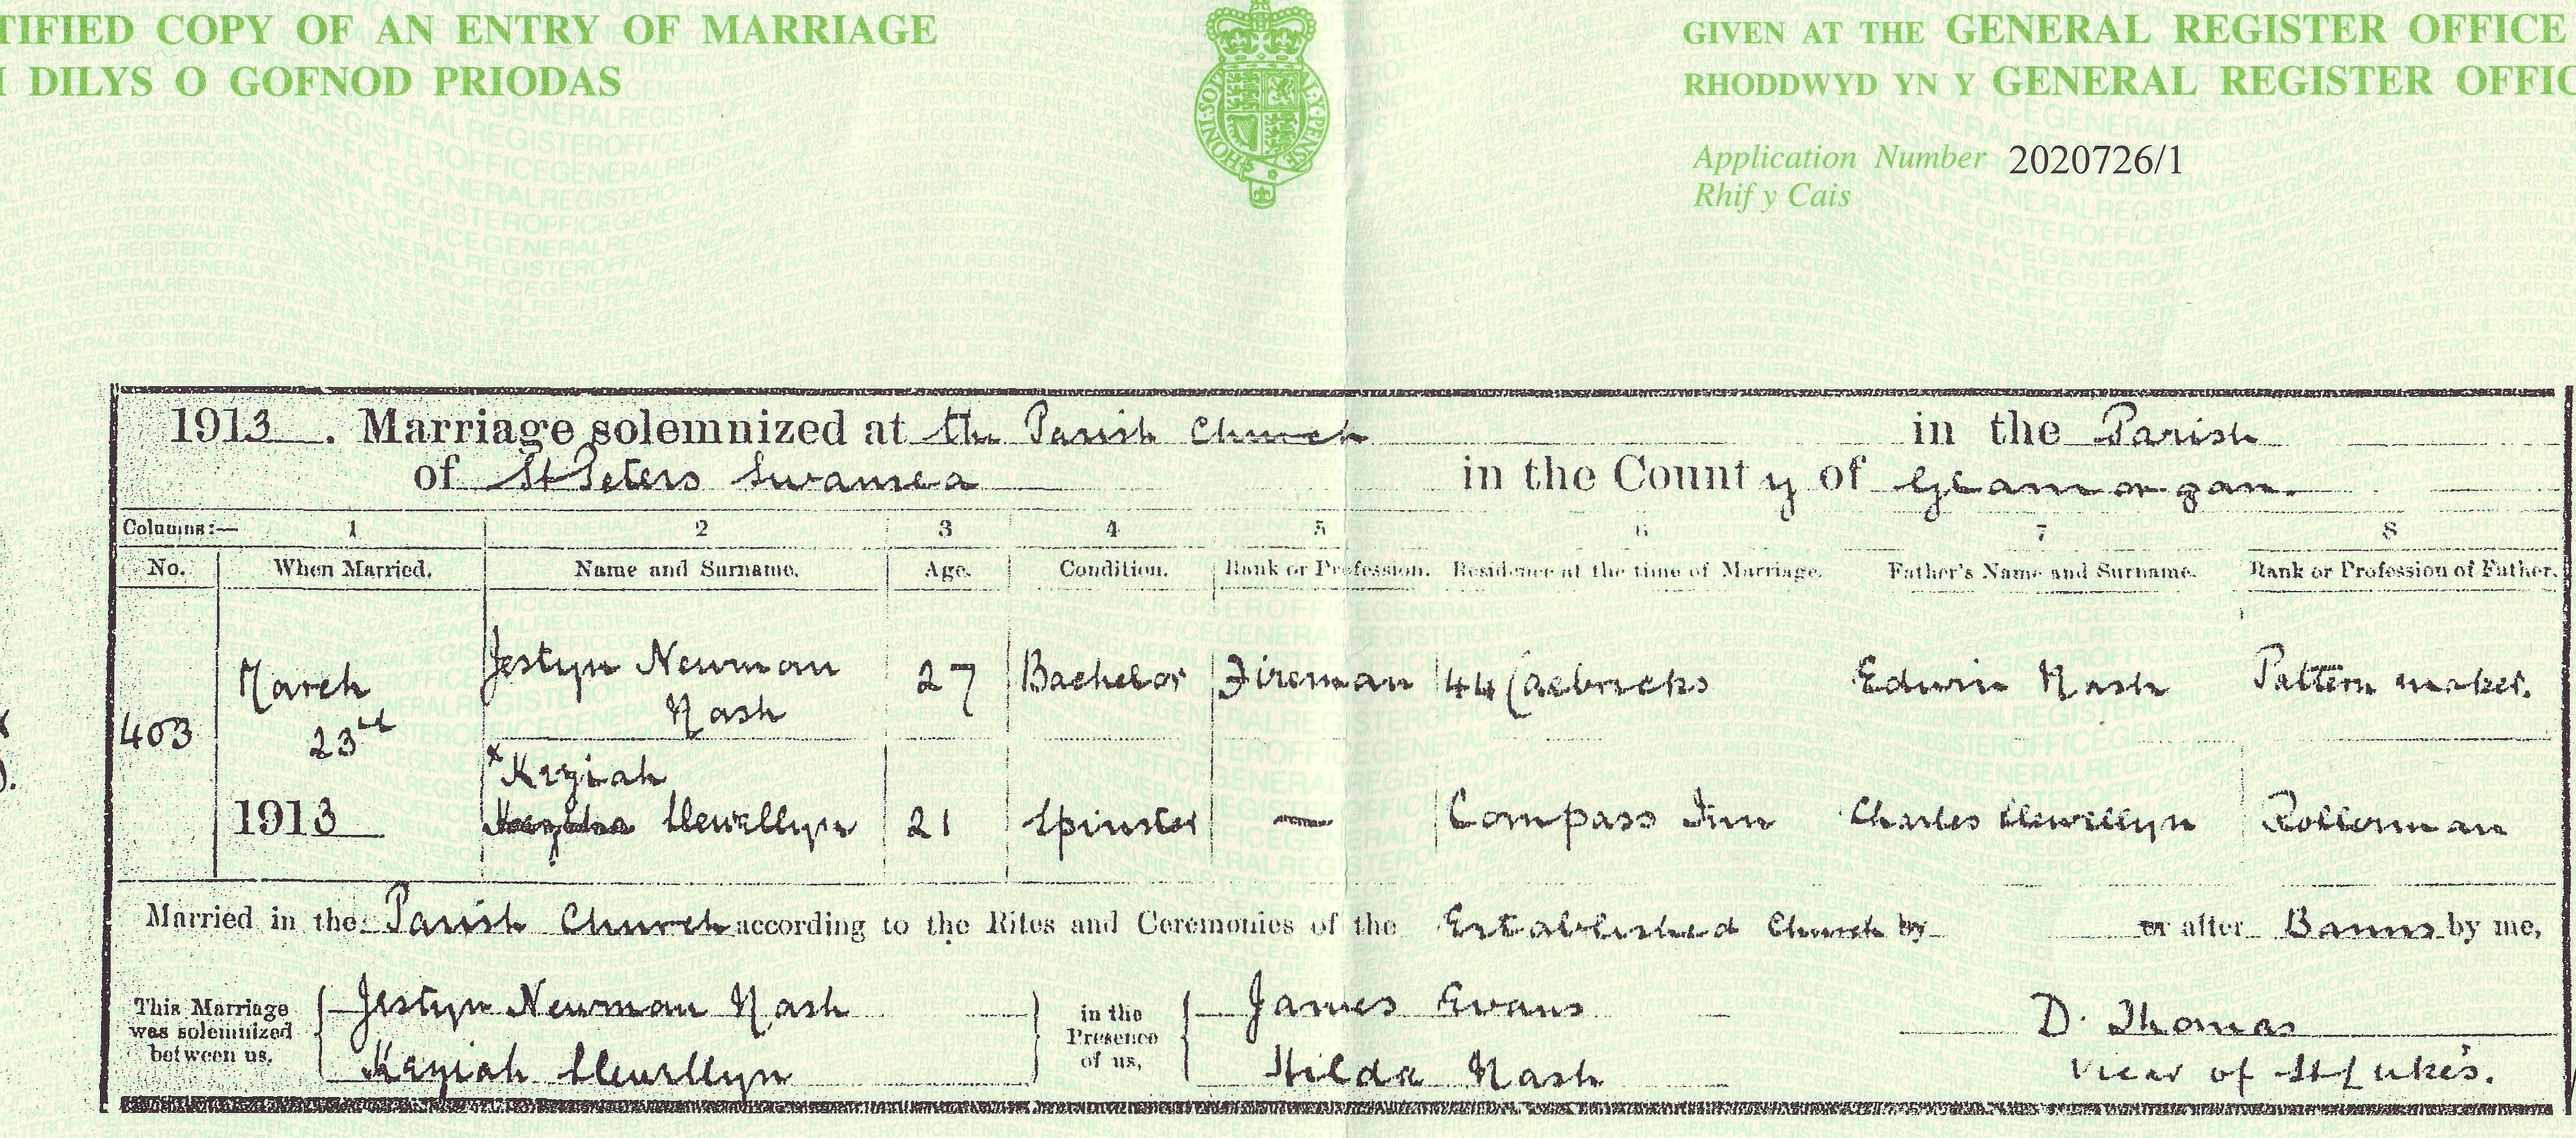 TIFIED COPY OF AN ENTRY OF MARRIAGE
DILYS O GOFNOD PRIODAS
HONI·SOIT·QUI·MAL·Y·PENSE
GIVEN AT THE GENERAL REGISTER OFFICE
RHODDWYD YN Y GENERAL REGISTER OFFIC
Application Number 2020726/1
Rhif y Cais
1913. Marriage solemnized at the Parish Church in the Parish
of St Peters Swansea in the County of Glamorgan.
Columns:— 1 2 3 4 5 6 7 8
No. When Married. Name and Surname. Age. Condition. Rank or Profession. Residence at the time of Marriage. Father's Name and Surname. Rank or Profession of Father.
403 March 23rd 1913 Jestyn Newman Nash 27 Bachelor Fireman 44 Caebricks Edwin Nash Pattern maker.
x Keziah
Llewellyn 21 Spinster — Compass Inn Charles Llewellyn Rollerman
Married in the Parish Church according to the Rites and Ceremonies of the Established Church by or after Banns by me,
This Marriage was solemnized between us, Jestyn Newman Nash in the Presence of us, James Evans D. Thomas
Keziah Llewellyn Hilda Nash Vicar of St Luke's.